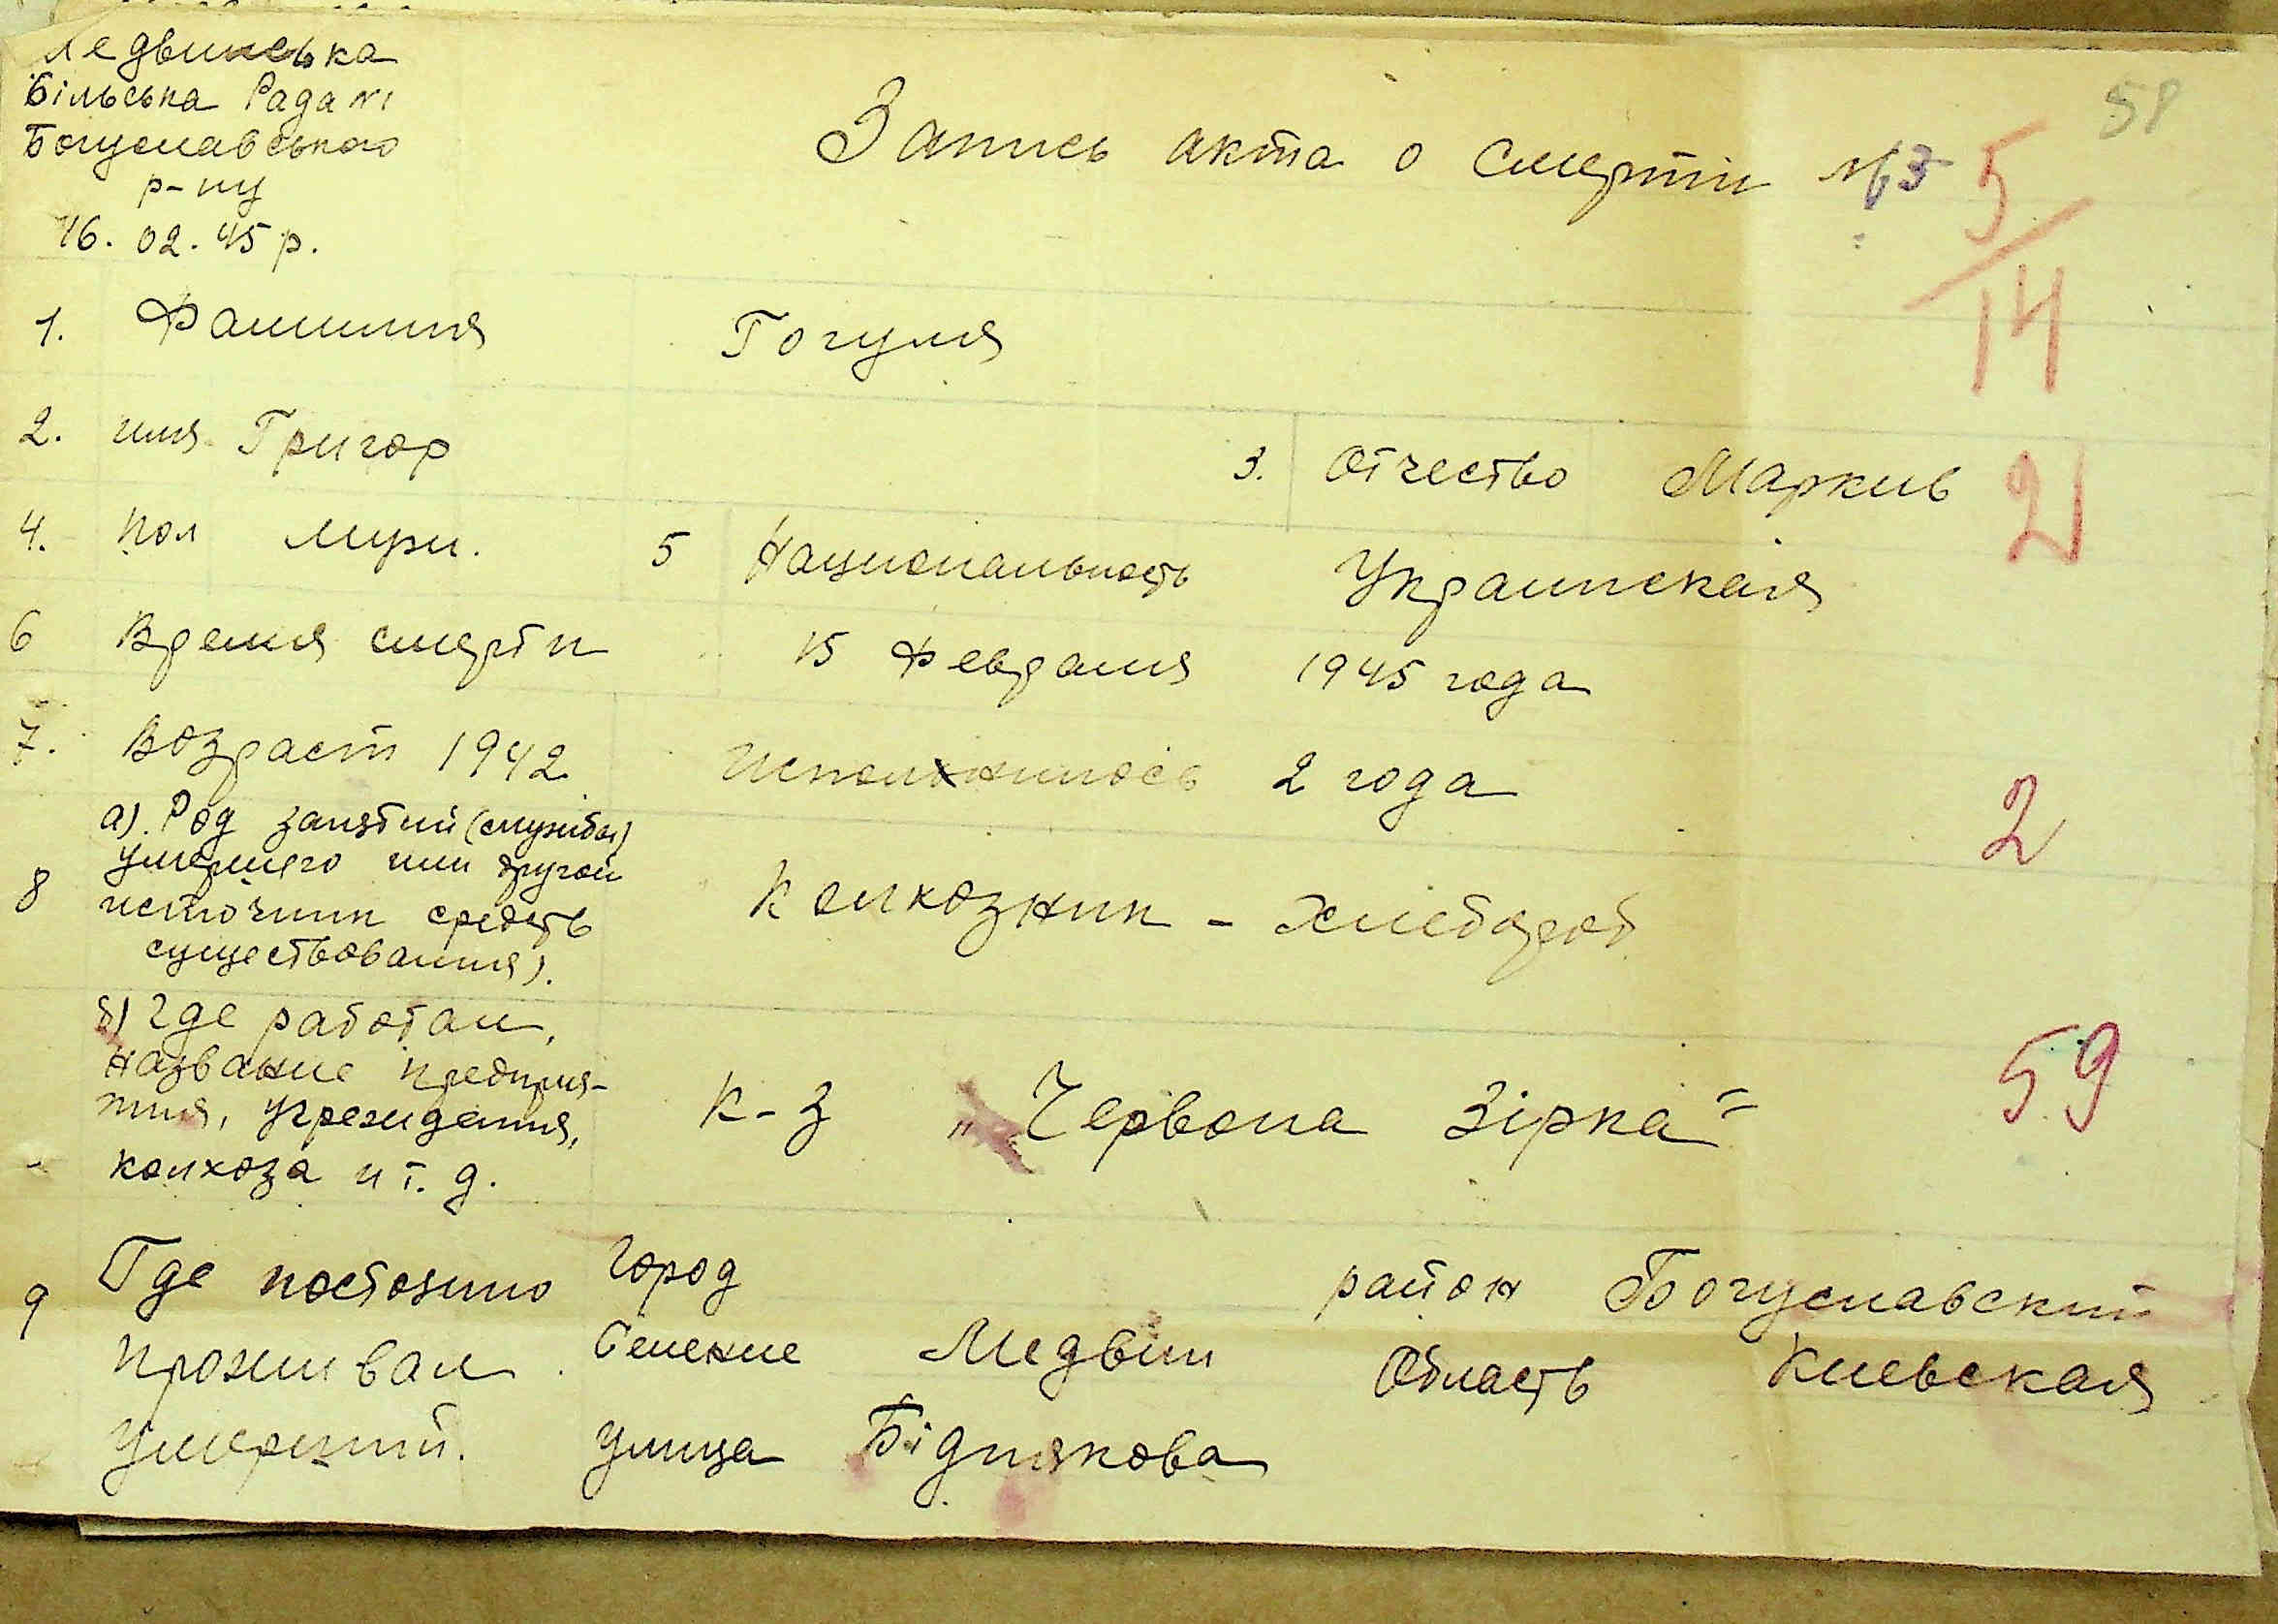 Медвинська
Сільська Рада №1
Богуславського
р-ну
16. 02. 45 р.
58
Запись акта о смерти № 3
5/14
1. Фамилия Гогуля
2. имя Григор 3. Отчество Маркив
21
4. Пол муж. 5 Национальность Украинская
6 Время смерти 15 Февраля 1945 года
7. Возраст 1942 Исполнилось 2 года
2
8 а). Род занятий (службы)
умершего или другой
источник средств
существования).
Колхозник - хлебороб
б) Где работал,
название предприя-
тия, учреждения,
колхоза и т. д.
К-з „Червона Зірка"
59
9 Где постояно
проживал
умерший.
Город район Богуславский
Селение Медвин Область Киевская
улица Біднякова